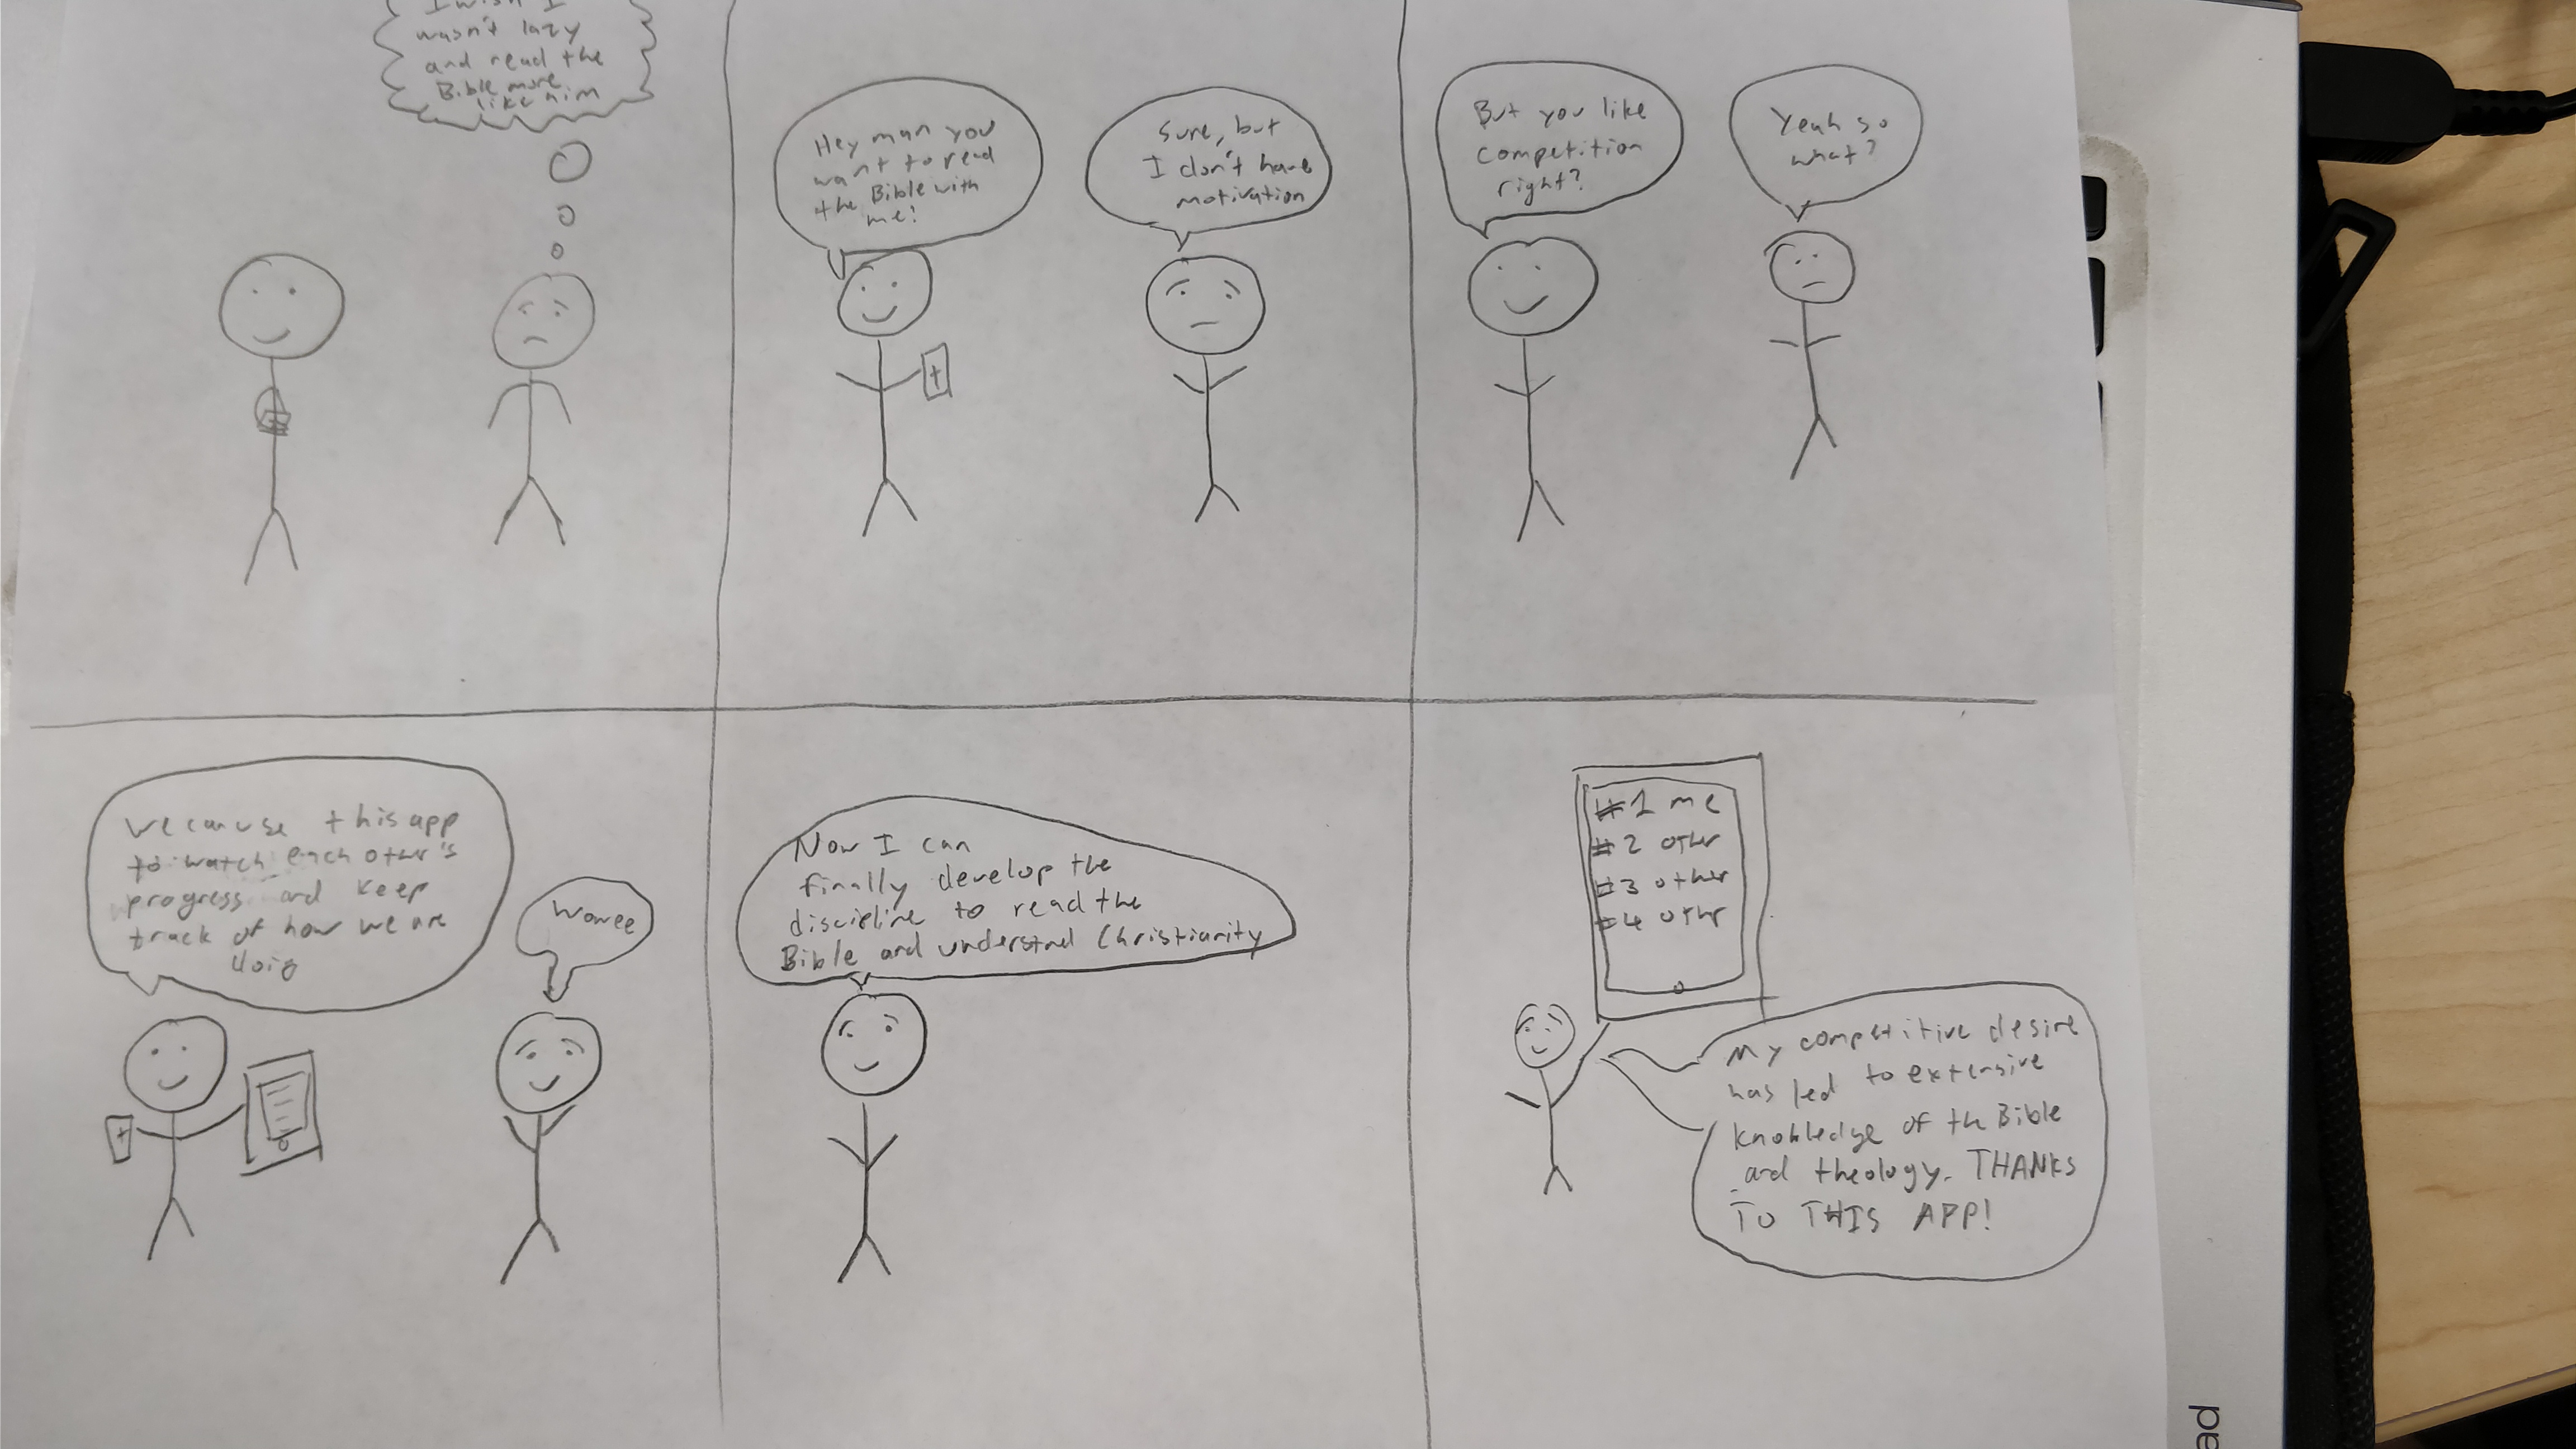 I wish I
wasn't lazy
and read the
Bible more
like him
Hey man you
want to read
the Bible with
me!
Sure, but
I don't have
motivation
But you like
competition
right?
Yeah so
what?
we can use this app
to watch each other's
progress and keep
track of how we are
doig
wowee
Now I can
finally develop the
discipline to read the
Bible and understnd Christianity
#1 me
#2 other
#3 other
#4 othr
My competitive desire
has led to extensive
knowledge of the Bible
and theology. THANKS
TO THIS APP!